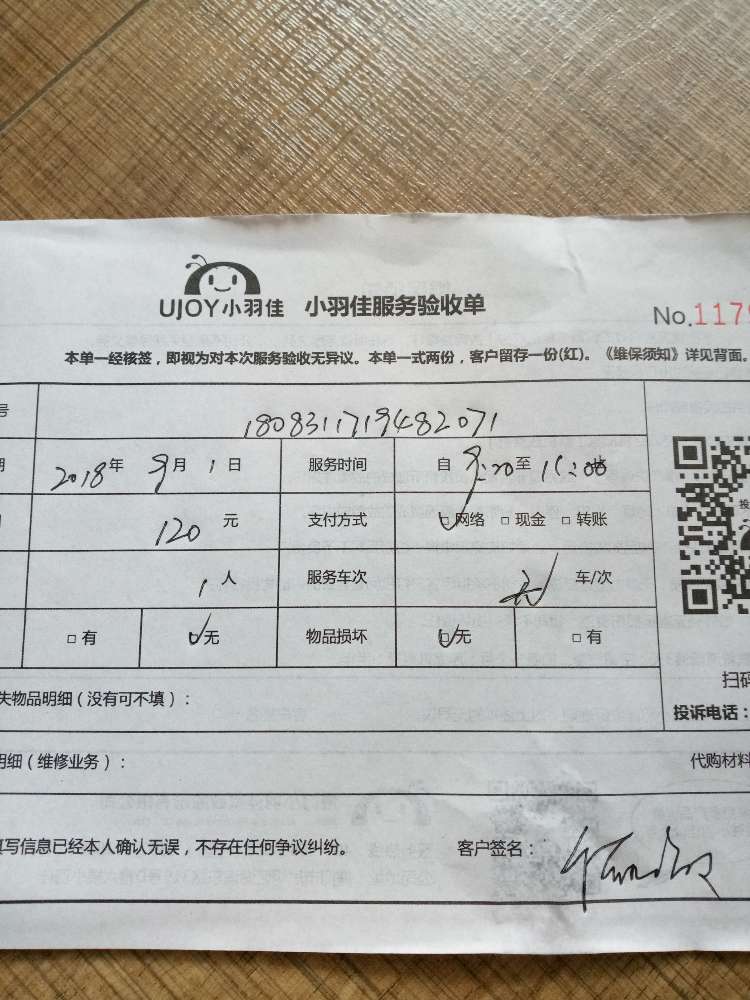 UJOY小羽佳 小羽佳服务验收单
No.1179
本单一经核签，即视为对本次服务验收无异议。本单一式两份，客户留存一份(红)。《维保须知》详见背面。
号 1808311719482071
期 2018年 9月 1日 服务时间 自 9:20至 11:00止
120 元 支付方式 □网络 □现金 □转账
1 人 服务车次 无 车/次
□有 □无 物品损坏 □无 □有
扫码
失物品明细（没有可不填）：
投诉电话：
明细（维修业务）： 代购材料
填写信息已经本人确认无误，不存在任何争议纠纷。 客户签名：